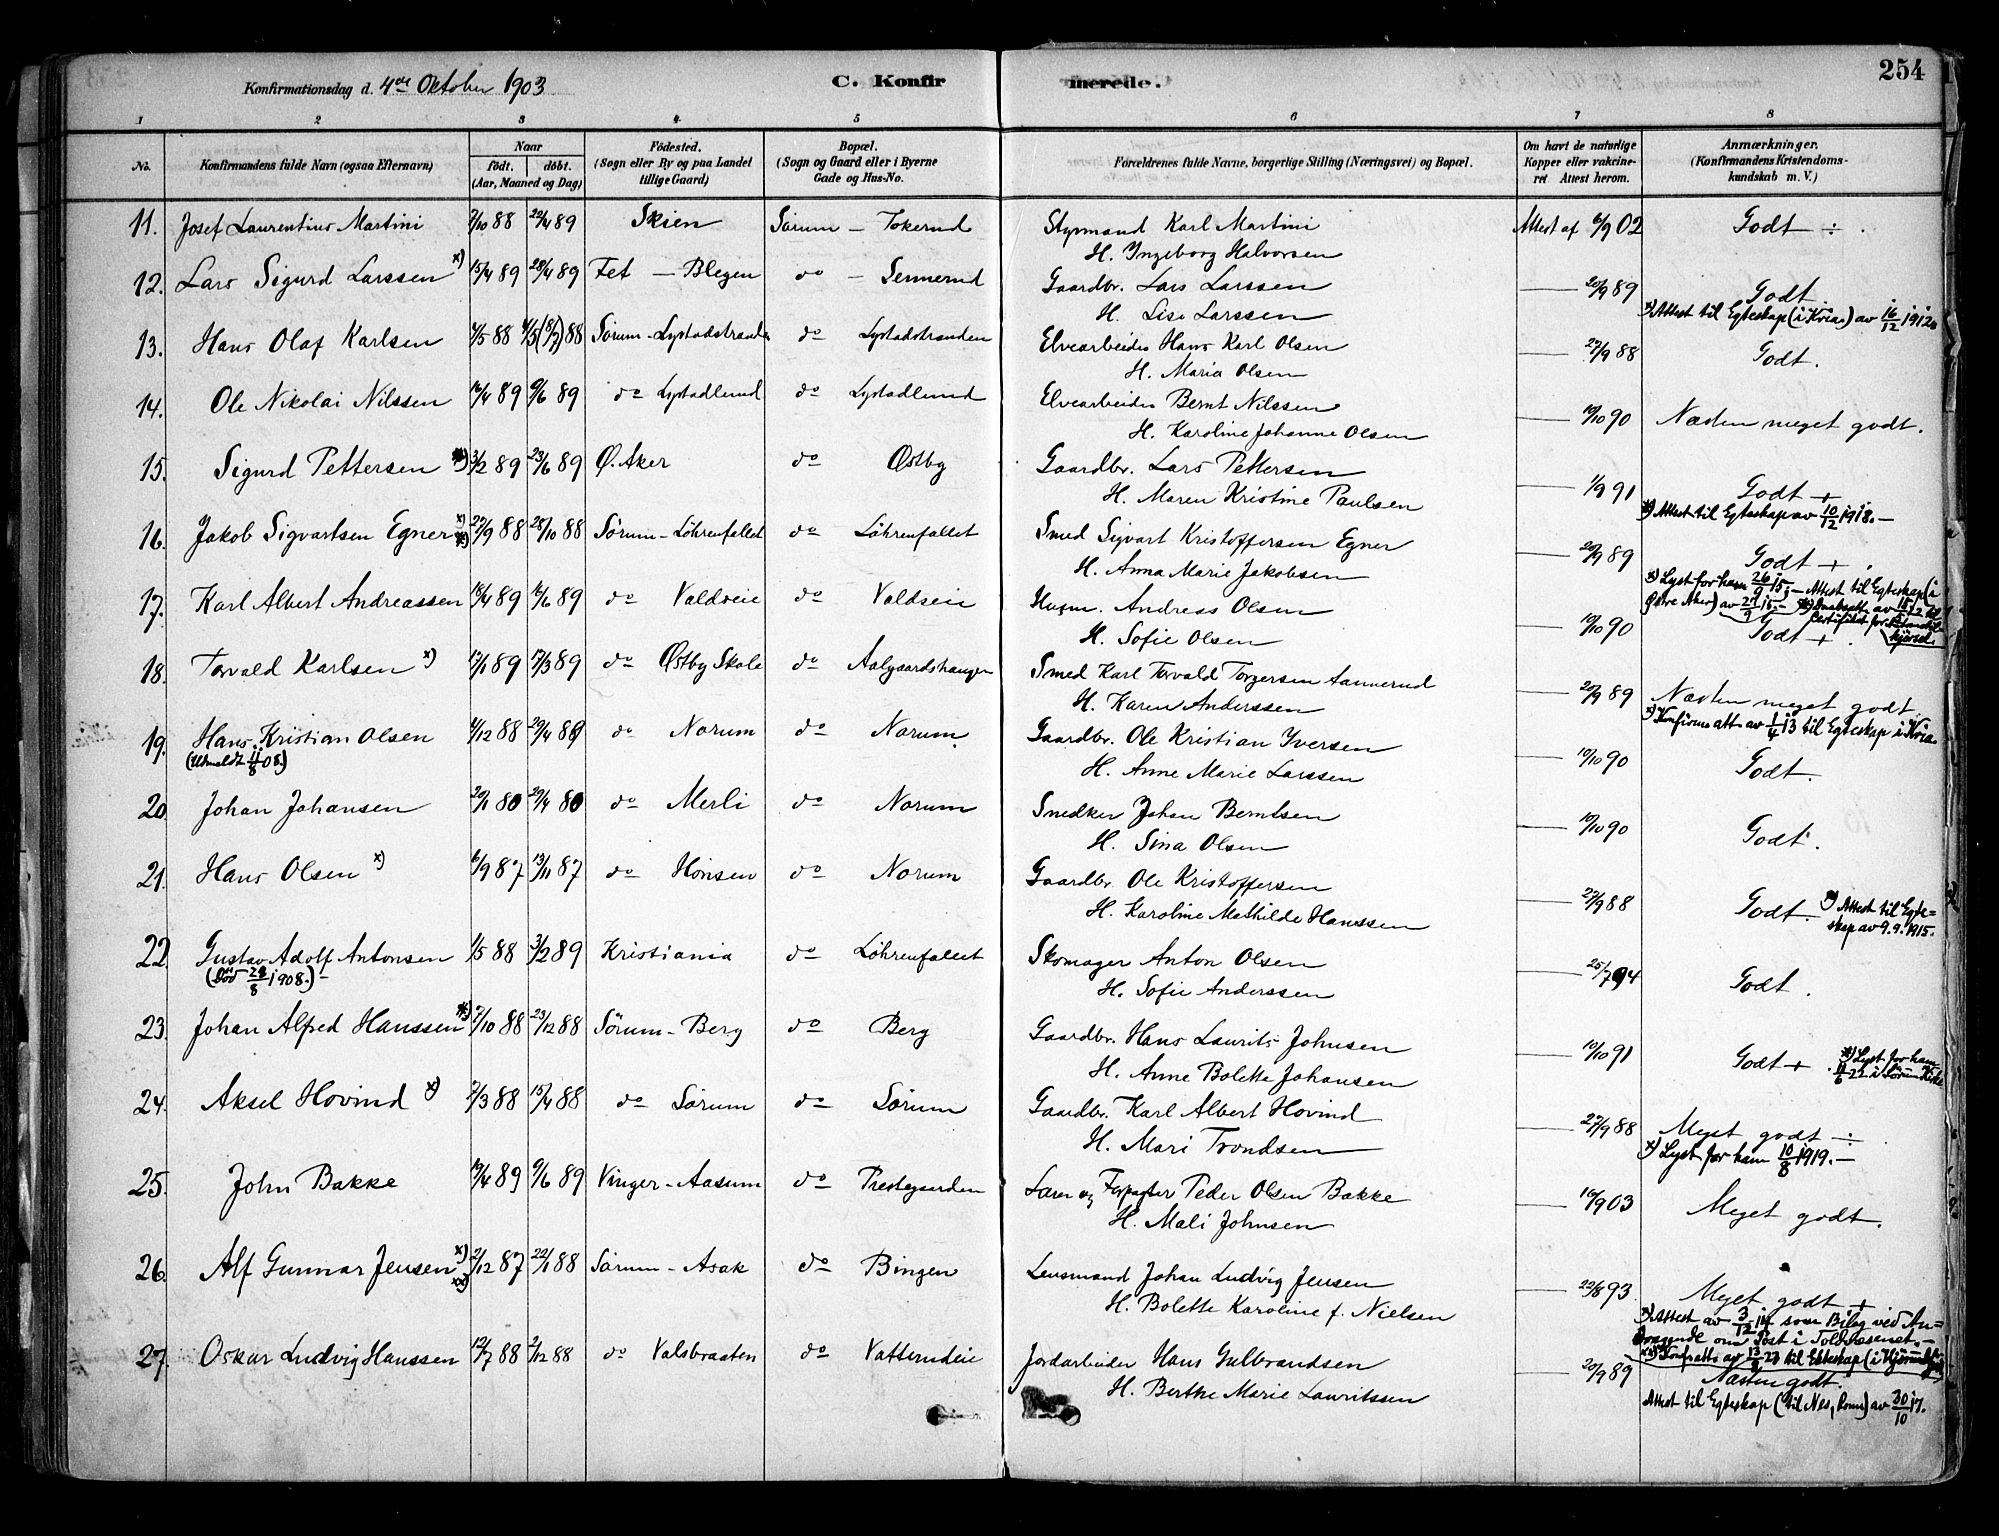 Konfirmationsdag d. 4de Oktober 1903 C. Konfirmerede. 254
1 2 3 4 5 6 7 8
No. Konfirmandens fulde Navn (ogsaa Efternavn) Naar født. døbt. (Aar, Maaned og Dag) Födested. (Sogn eller By og paa Landet tillige Gaard) Bopæl. (Sogn og Gaard eller i Byerne Gade og Hus-No. Forældrenes fulde Navne, borgerlige Stilling (Næringsvei) og Bopæl. Om havt de naturlige Kopper eller vakcineret Attest herom. Anmærkninger. (Konfirmandens Kristendomskundskab m. V.)
11. Josef Laurentius Martini 7/10 88 22/4 89 Skien Sørum – Tokerud Styrmand Karl Martini Attest af 6/9 02 Godt ÷.
H. Ingeborg Halvorsen
12. Lars Sigurd Larssen x) 15/4 89 28/4 89 Fet – Blegen do – Sennerud Gaardbr. Lars Larssen — 20/9 89 Godt
H. Lise Larssen x) Attest til Egteskap (i Kria) av 16/12 1912
13. Hans Olaf Karlsen 4/5 88 4/5 (8/7) 88 Sørum – Lystadstranden do Lystadstranden Elvearbeider Hans Karl Olsen — 27/9 88 Godt.
H. Maria Olsen
14. Ole Nikolai Nilssen 16/4 89 9/6 89 do Lystadlund do Lystadlund Elvearbeider Bernt Nilssen — 10/10 90 Næsten meget godt.
H. Karoline Johanne Olsen
15. Sigurd Pettersen x) 3/2 89 23/6 89 Ø. Aker do Østby Gaardbr. Lars Pettersen — 1/9 91 Godt +
H. Maren Kristine Paulsen x) Attest til Egteskap av 10/12 1918. –
16. Jakob Sigvartsen Egner x) 27/9 88 28/10 88 Sørum – Löhrenfallet do Löhrenfallet Smed Sigvart Kristoffersen Egner — 20/9 89 Godt +.
H. Anna Marie Jakobsen x) Lyst for ham 26/9 15; – Attest til Egteskap (i
Østre Aker) av 27/9 15. –
17. Karl Albert Andreassen 18/4 89 16/6 89 do Valdveie do Valdseie Husm. Andreas Olsen — 10/10 90 Godt +.
H. Sofie Olsen
18. Torvald Karlsen x) 17/1 89 17/3 89 do Østby Skole do Aalgaardshaugen Smed Karl Torvald Torgersen Aannerud — 20/9 89 Næsten meget godt
H. Karen Anderssen x) Konfirmatt av 1/4 13 til Egteskap i Kria
19. Hans Kristian Olsen 4/12 88 29/4 89 do Norum do Norum Gaardbr. Ole Kristian Iversen — 10/10 90 Godt.
(Utmeldt 11/8 08.) H. Anne Marie Larssen
20. Johan Johansen 20/1 80 29/4 80 do Merli do Norum Snedker Johan Berntsen — 10/10 90 Godt.
H. Sina Olsen
21. Hans Olsen x) 6/9 87 13/11 87 do Hönsen do Norum Gaardbr. Ole Kristoffersen — 27/9 88 Godt. x) Attest til Egte-
H. Karoline Mathilde Hanssen skap av 9.9.1915.
22. Gustav Adolf Antonsen 1/5 88 3/2 89 Kristiania do Löhrenfallet Skomager Anton Olsen — 25/7 94 Godt.
(Död 28/8 1908.) – H. Sofie Anderssen
23. Johan Alfred Hanssen x) 7/10 88 23/12 88 Sörum – Berg do Berg Gaardbr. Hans Laurits Johnsen — 10/10 91 Godt + x) Lyst for ham
H. Anne Bolette Johansen 11/6 22 i Sörum Kirke
24. Aksel Hovind x) 2/3 88 15/4 88 do Sörum do Sörum Gaardbr. Karl Albert Hovind — 27/9 88 Meget godt ÷
H. Mari Trondsen x) Lyst for ham 10/8 1919. –
25. John Bakke 19/4 89 9/6 89 Vinger – Aasum do Prestegaarden Lærer og Forpagter Peder Olsen Bakke — 16/9 03 Meget godt.
H. Mali Johnsen
26. Alf Gunnar Jensen x) xx) 2/12 87 22/1 88 Sörum – Asak do Bingen Lensmand Johan Ludvig Jensen — 22/8 93 Meget godt +
H. Bolette Karoline f. Nielsen x) Attest av 3/12 14 som Bilag ved An-
dragende om Post i Toldvæsenet. –
27. Oskar Ludvig Hanssen 12/7 88 2/12 88 do Valsbraaten do Vatterudeie Jordarbeider Hans Gulbrandsen — 20/9 89 Næsten godt.
H. Berthe Marie Lauritssen Attest til Egteskap (til Nes, Rom.) av 30/10 17.